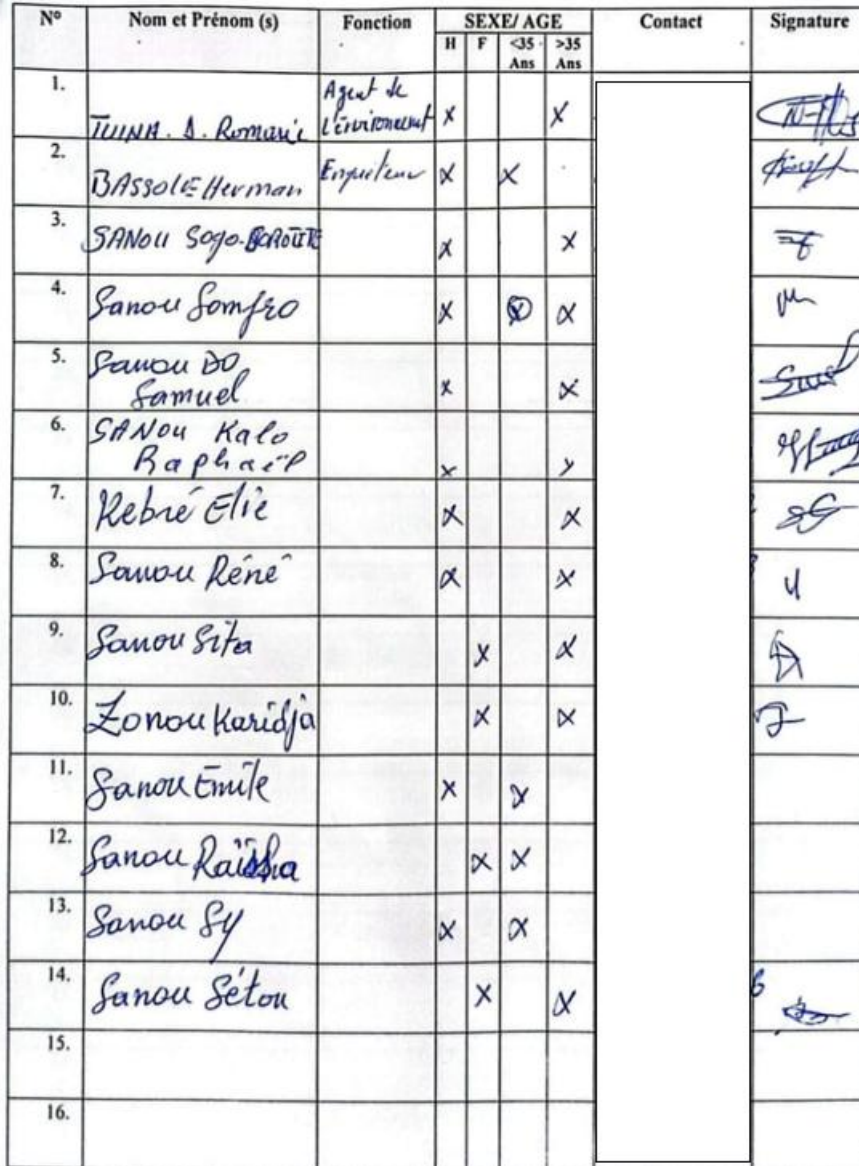 N° Nom et Prénom (s) Fonction SEXE/ AGE Contact Signature
H F <35 Ans >35 Ans
1. TUINA. D. Romaric Agent de l'environnement X X
2. BASSOLE Herman Enquêteur X X
3. SANOU Sogo X X
4. Sanou Somfro X X X
5. Sanou DO
Samuel X X
6. SANOU Kalo
Raphaël X X
7. Kebré Elie X X
8. Sanou Réné X X
9. Sanou Sita X X
10. Zonou Karidja X X
11. Sanou Emile X X
12. Sanou Raïssa X X
13. Sanou Sy X X
14. Sanou Sétou X X
15.
16.